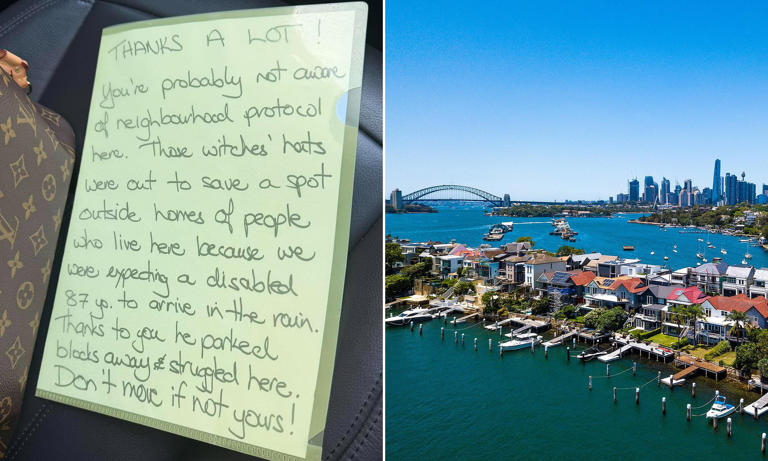 THANKS A LOT!
You're probably not aware
of neighbourhood protocol
here. Those witches' hats
were out to save a spot
outside homes of people
who live here because we
were expecting a disabled
87 yo. to arrive in the rain.
Thanks to you he parked
blocks away & struggled here.
Don't move if not yours!